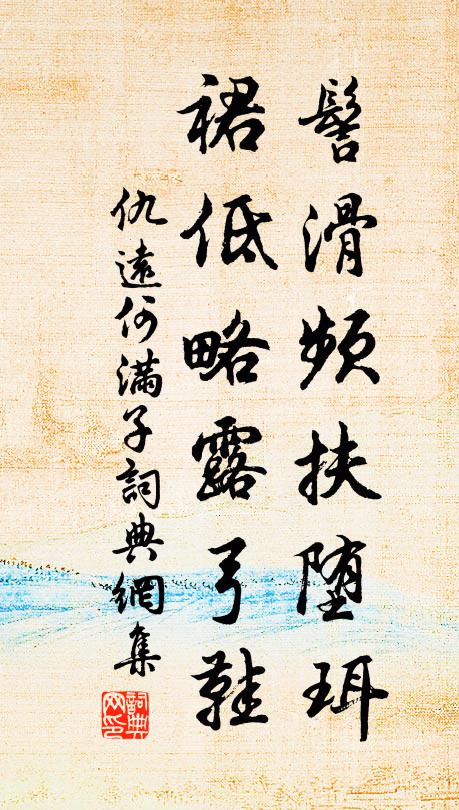 髻滑頻扶堕珥
裙低略露弓鞋
仇遠何滿子詞典網集
詞典網印